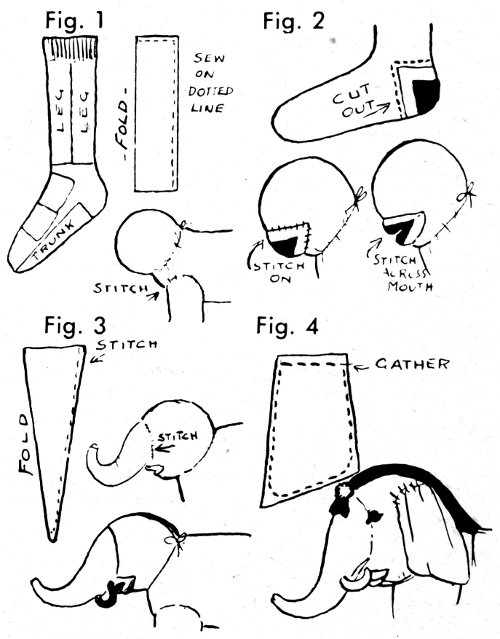 Fig. 1
LEG
LEG
TRUNK
- FOLD -
SEW
ON
DOTTED
LINE
STITCH
Fig. 2
CUT
OUT
STITCH
ON
STITCH
ACROSS
MOUTH
Fig. 3
STITCH
FOLD
STITCH
Fig. 4
GATHER